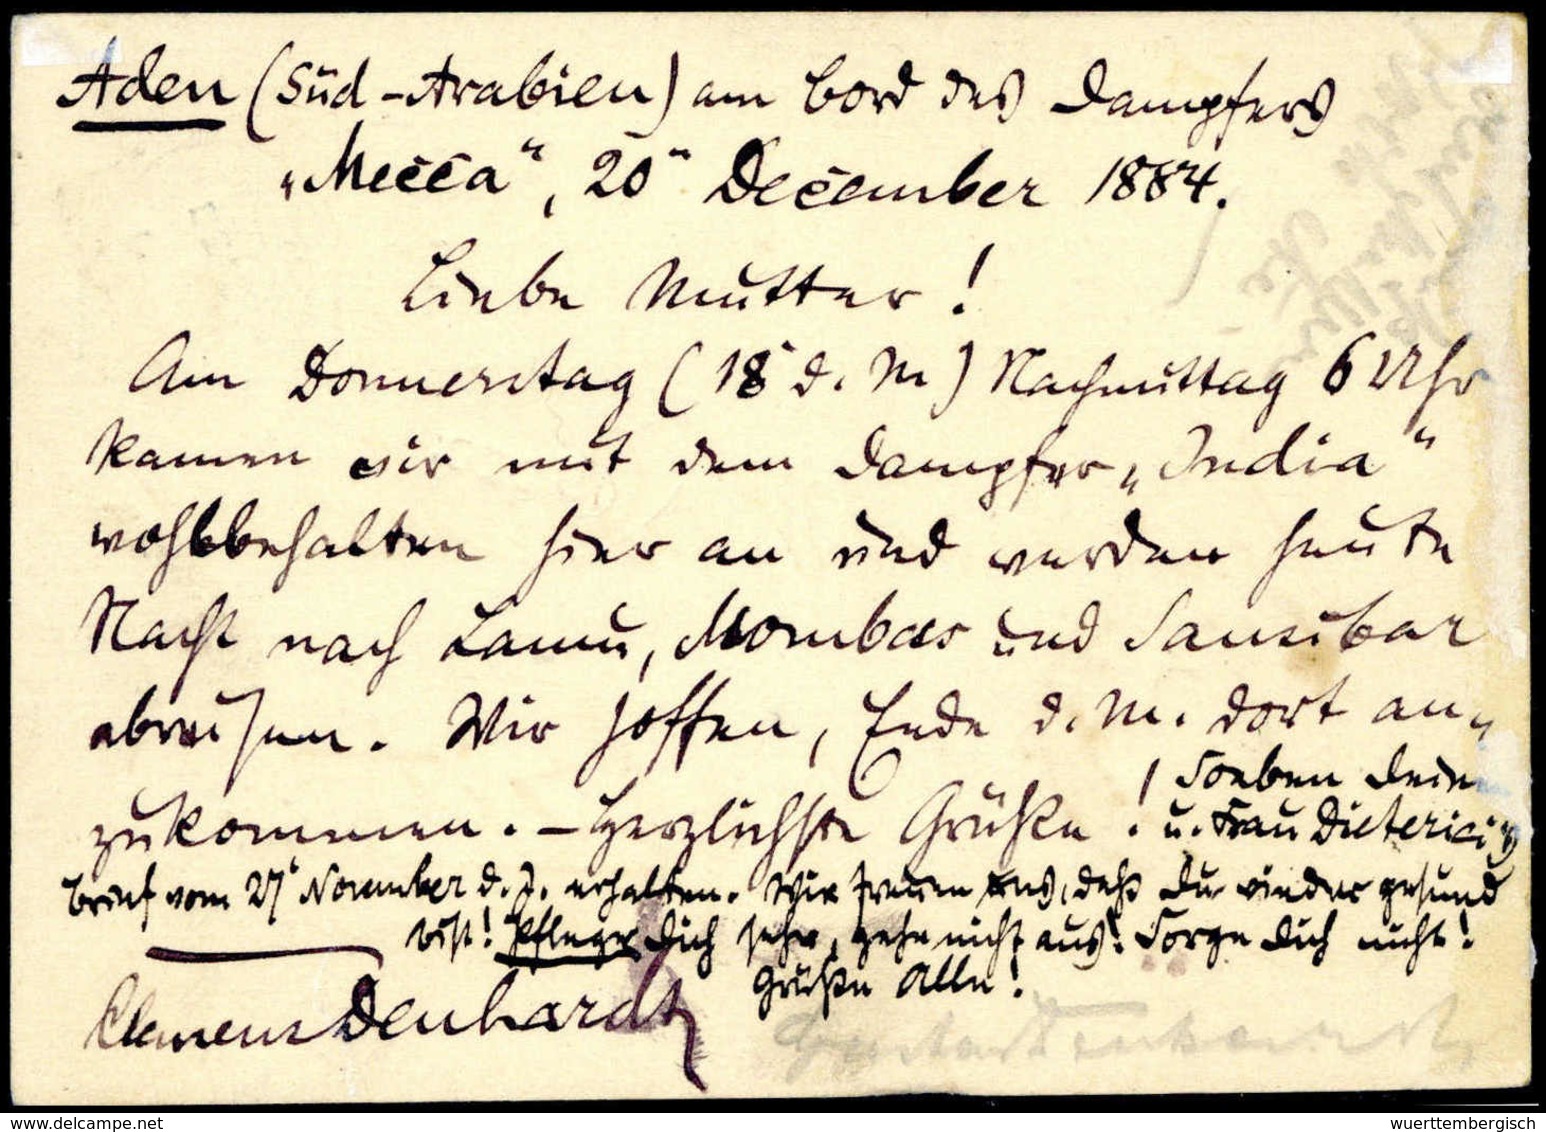 Aden (Süd-Arabien) am Bord des Dampfers
„Mecca“, 20 December 1884.
Liebe Mutter!
Am Donnerstag (18 d. M.) Nachmittag 6 Uhr
kamen wir mit dem Dampfer „India“
wohlbehalten hier an und werden heute
Nacht nach Lamu, Mombas und Sansibar
abreisen. Wir hoffen, Ende d. M. dort an-
zukommen. – Herzlichste Grüße! Soeben Deine
u. Frau Dieterici's
Brief vom 27 November d. J. erhalten. Wir freuen uns, daß Du wieder gesund
bist! Pflege Dich sehr, gehe nicht aus! Sorge Dich nicht!
Grüße Alle!
Clemens Denhardt
Gustav Denhardt
www.delcampe.net
wuerttembergisch